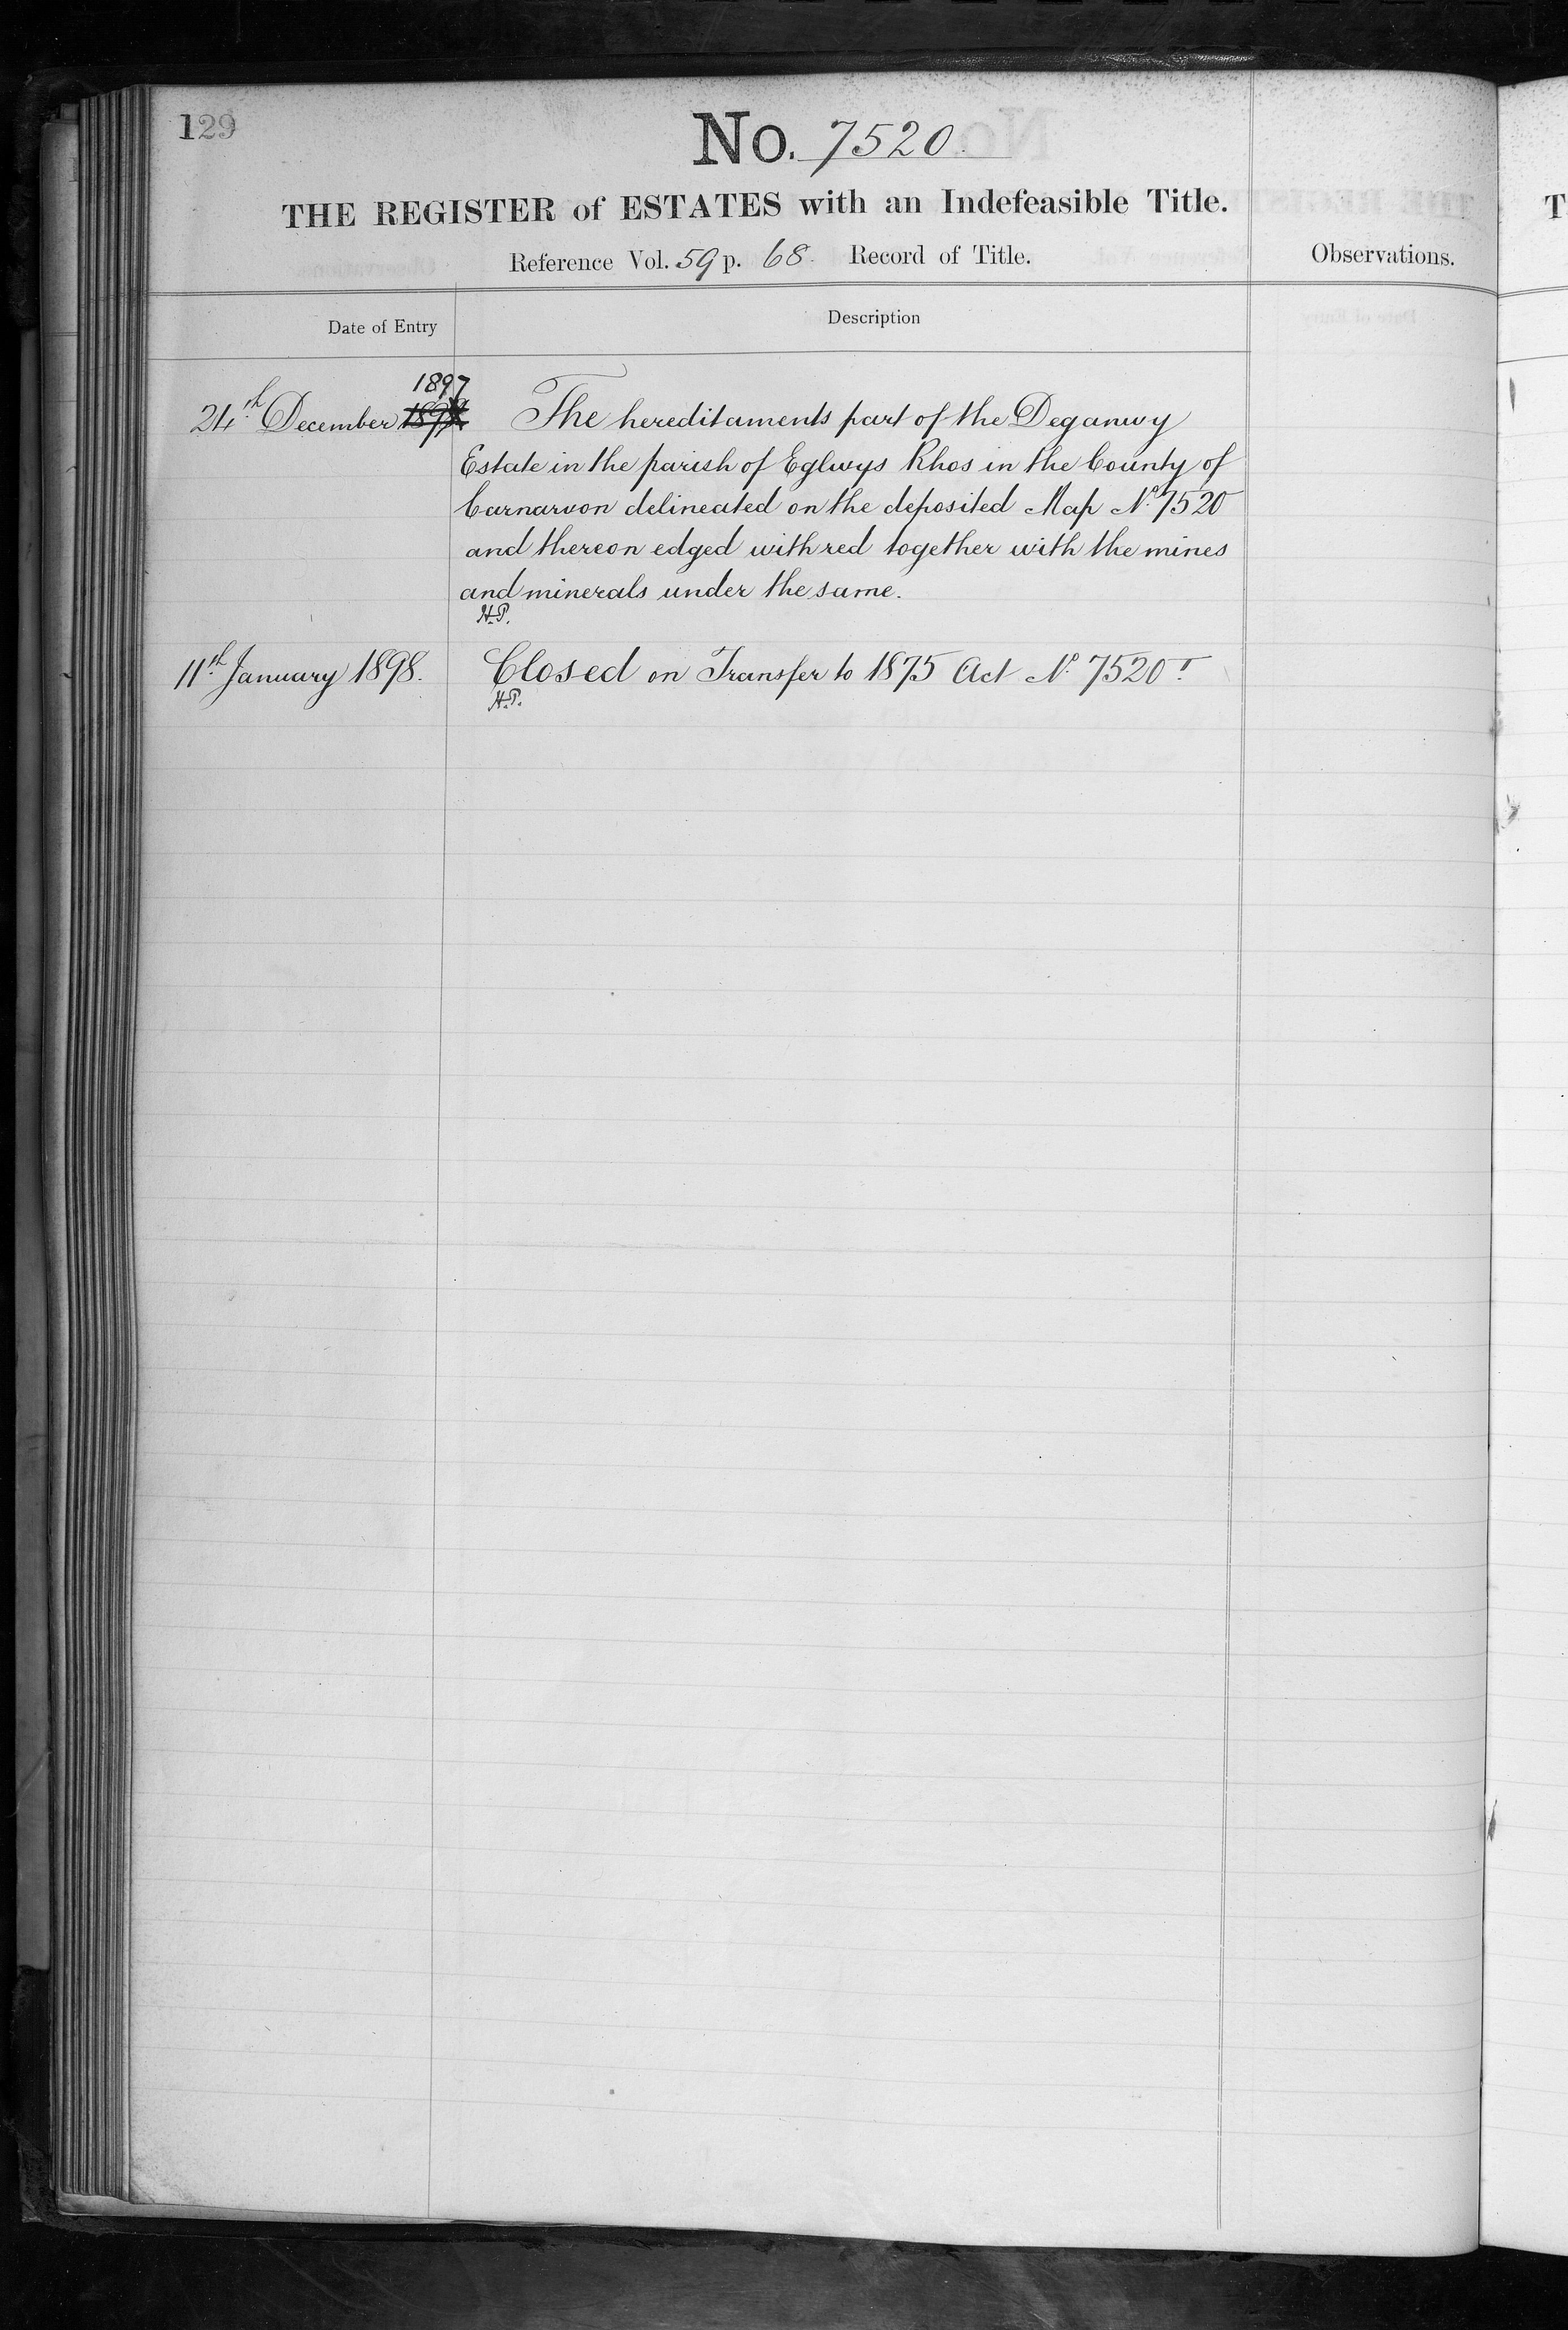 129
No. 7520
THE REGISTER of ESTATES with an Indefeasible Title.
Reference Vol. 59 p. 68. Record of Title.
Observations.
Date of Entry
Description
1897
24th December
The hereditaments part of the Deganwy
Estate in the parish of Eglwys Rhos in the County of
Carnarvon delineated on the deposited Map No. 7520
and thereon edged with red together with the mines
and minerals under the same.
H.P.
11th January 1898.
Closed on Transfer to 1875 Act No. 7520T
H.P.
T